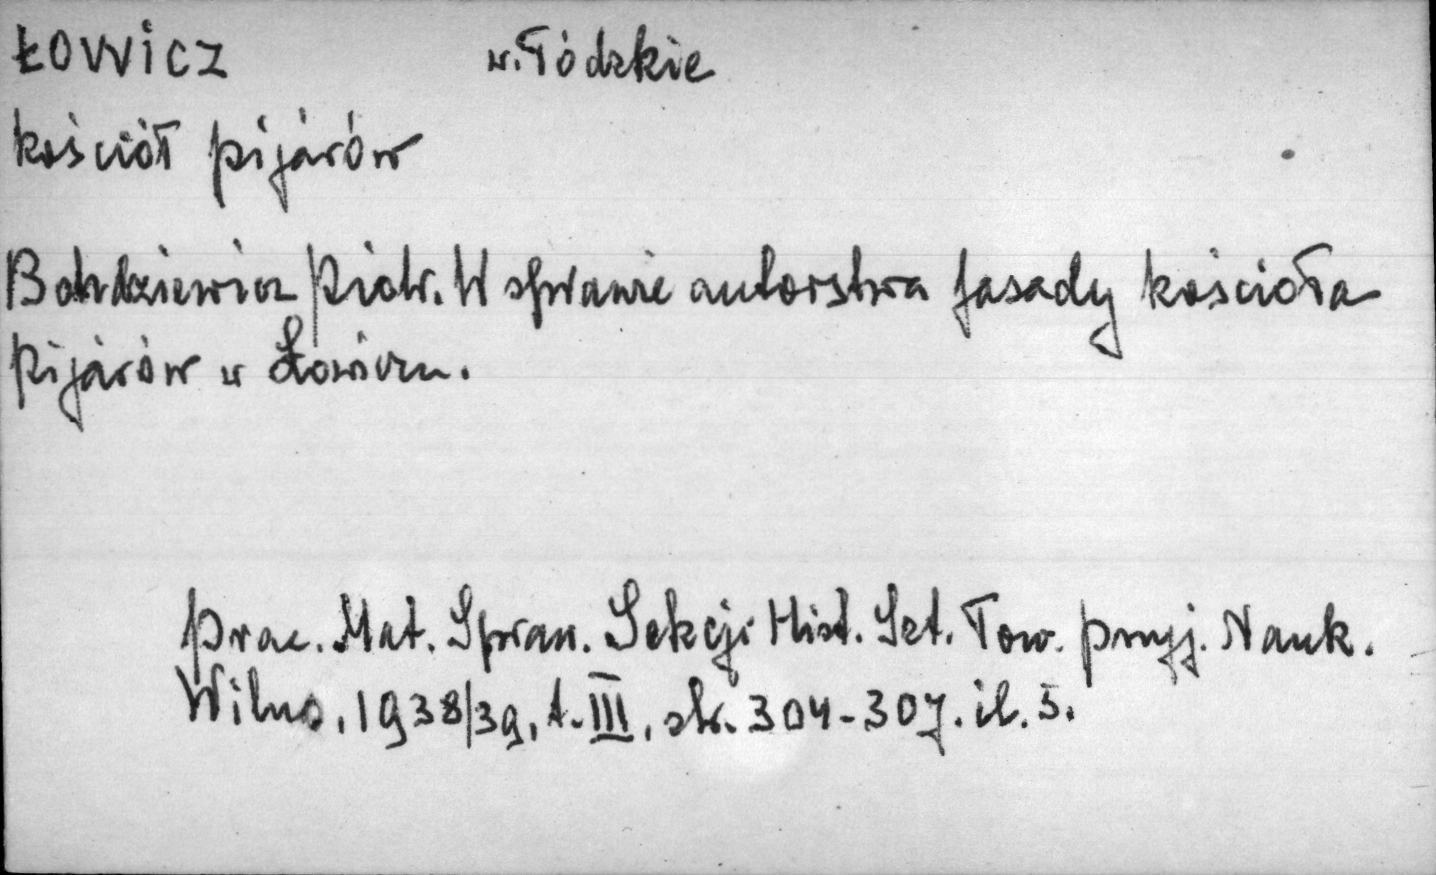 ŁOWICZ w. Łódzkie
kościół pijarów
Bohdziewicz Piotr. W sprawie autorstwa fasady kościoła
pijarów w Łowiczu.
Prac. Mat. Spraw. Sekcji Hist. Szt. Tow. Przyj. Nauk.
Wilno, 1938/39, t. III, str. 304-307. il. 5.